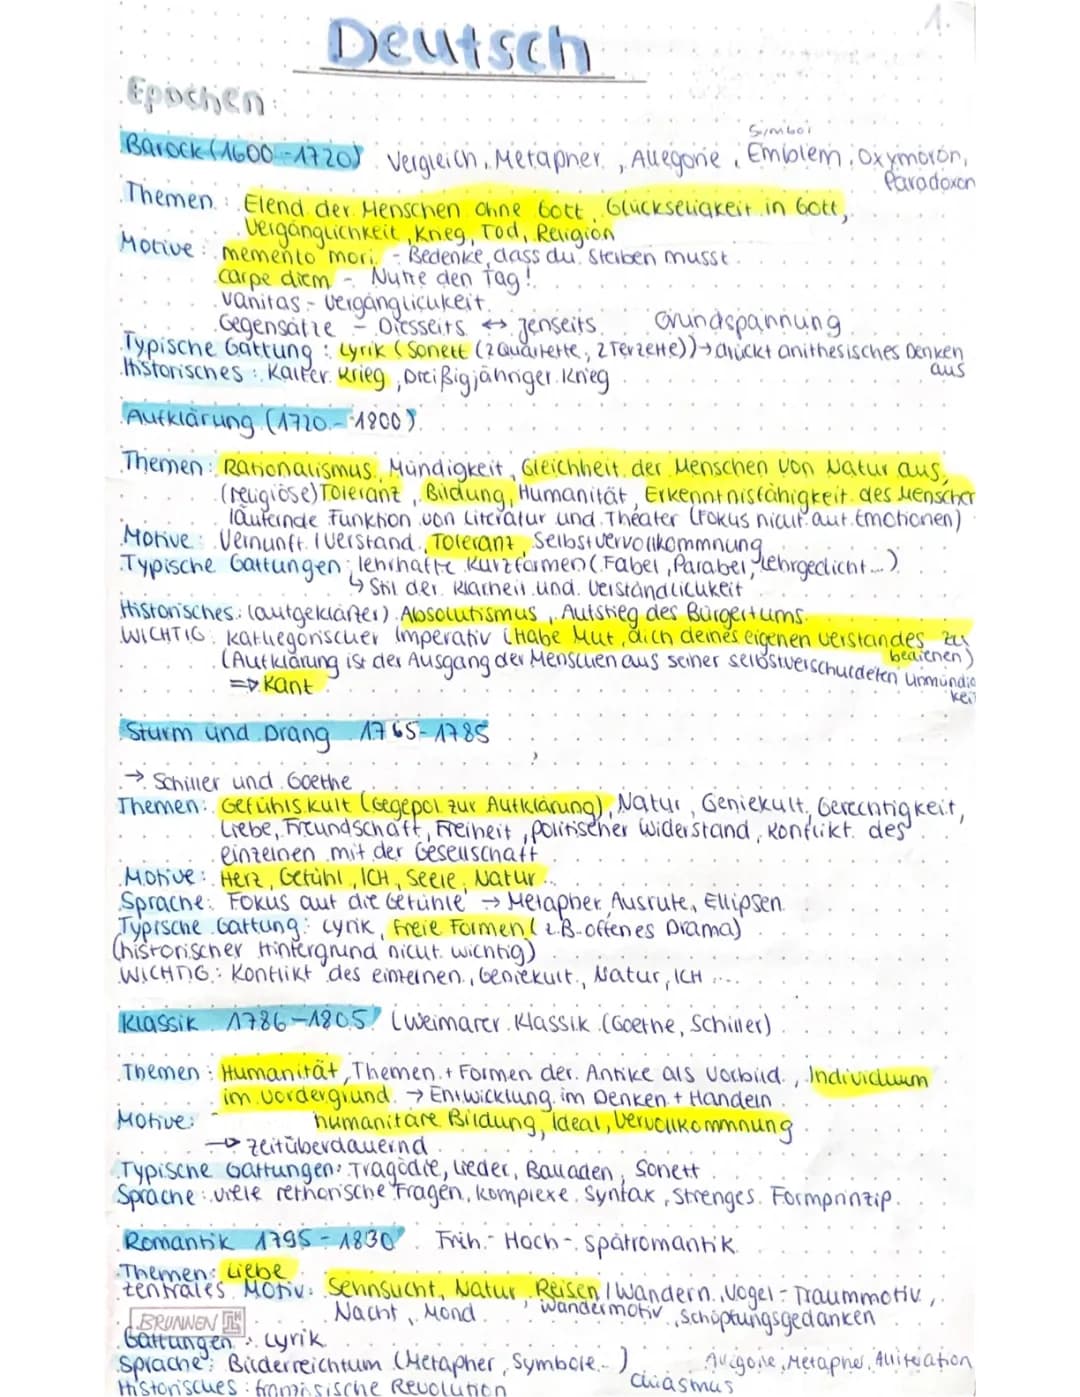 1.
Deutsch
Epochen:
Symbol
Barock (1600-1720) Vergleich, Metapher, Allegorie, Emblem, Oxymoron,
Paradoxon
Themen: Elend der Menschen ohne Gott, Glückseligkeit in Gott,
Vergänglichkeit, Krieg, Tod, Religion
Motive: memento mori - Bedenke, dass du sterben musst
carpe diem - Nutze den Tag!
vanitas - Vergänglichkeit
Gegensätze - Diesseits ↔ Jenseits Grundspannung
Typische Gattung: Lyrik (Sonett (2 Quartette, 2 Terzette)) → drückt anithesisches Denken
aus
Historisches: Kalter Krieg, Dreißigjähriger Krieg
Aufklärung (1720-1800)
Themen: Rationalismus, Mündigkeit, Gleichheit der Menschen von Natur aus,
(religiöse) Toleranz, Bildung, Humanität, Erkenntnisfähigkeit des Menschen
läuternde Funktion von Literatur und Theater (Fokus nicht auf Emotionen)
Motive: Vernunft / Verstand, Toleranz, Selbstvervollkommnung
Typische Gattungen: lehrhafte Kurzformen (Fabel, Parabel, Lehrgedicht...)
↳ Stil der Klarheit und Verständlichkeit
Historisches: (aufgeklärter) Absolutismus, Aufstieg des Bürgertums
WICHTIG: kathegorischer Imperativ (Habe Mut, dich deines eigenen Verstandes zu
bedienen)
(Aufklärung ist der Ausgang der Menschen aus seiner selbstverschuldeten Unmündig
kei
⇒ Kant
Sturm und Drang 1765-1785
→ Schiller und Goethe
Themen: Gefühlskult (Gegepol zur Aufklärung), Natur, Geniekult, Gerechtigkeit,
Liebe, Freundschaft, Freiheit, politischer Widerstand, Konflikt des
einzelnen mit der Gesellschaft
Motive: Herz, Gefühl, ICH, Seele, Natur...
Sprache: Fokus auf die Gefühle → Metapher, Ausrufe, Ellipsen
Typische Gattung: Lyrik, freie Formen (z.B. offenes Drama)
(historischer Hintergrund nicht wichtig)
WICHTIG: Konflikt des einzelnen, Geniekult, Natur, ICH ...
Klassik 1786-1805 (Weimarer Klassik (Goethe, Schiller)
Themen: Humanität, Themen + Formen der Antike als Vorbild, Individuum
im Vordergrund → Entwicklung im Denken + Handeln
Motive: humanitäre Bildung, Ideal, Vervollkommnung
→ zeitüberdauernd
Typische Gattungen: Tragödie, Lieder, Balladen, Sonett
Sprache: viele rethorische Fragen, komplexe Syntax, strenges Formprinzip.
Romantik 1795-1830 Früh- Hoch-, Spätromantik
Themen: Liebe
zentrales Motiv: Sehnsucht, Natur, Reisen / Wandern, Vogel = Traummotiv,
Nacht, Mond, Wandermotiv, Schöpfungsgedanken
BRUNNEN
Gattungen: Lyrik
Sprache: Bilderreichtum (Metapher, Symbole..) Allegorie, Metapher, Alliteration
Chiasmus
Historisches: französische Revolution